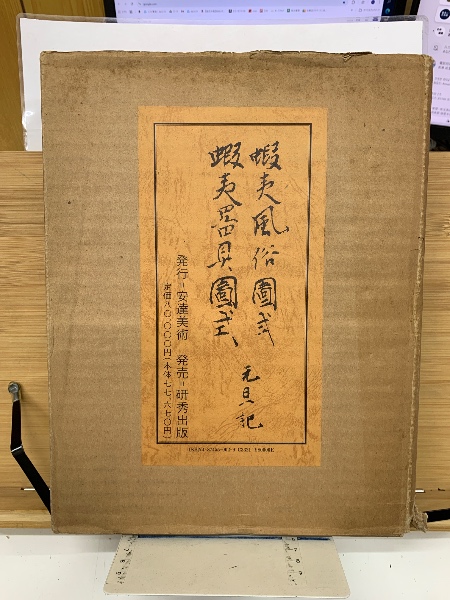 蝦夷風俗圖式
蝦夷噐具圖式
元旦記
発行=安達美術　発売=研秀出版
定価八〇、〇〇〇円(本体七七、六七〇円)